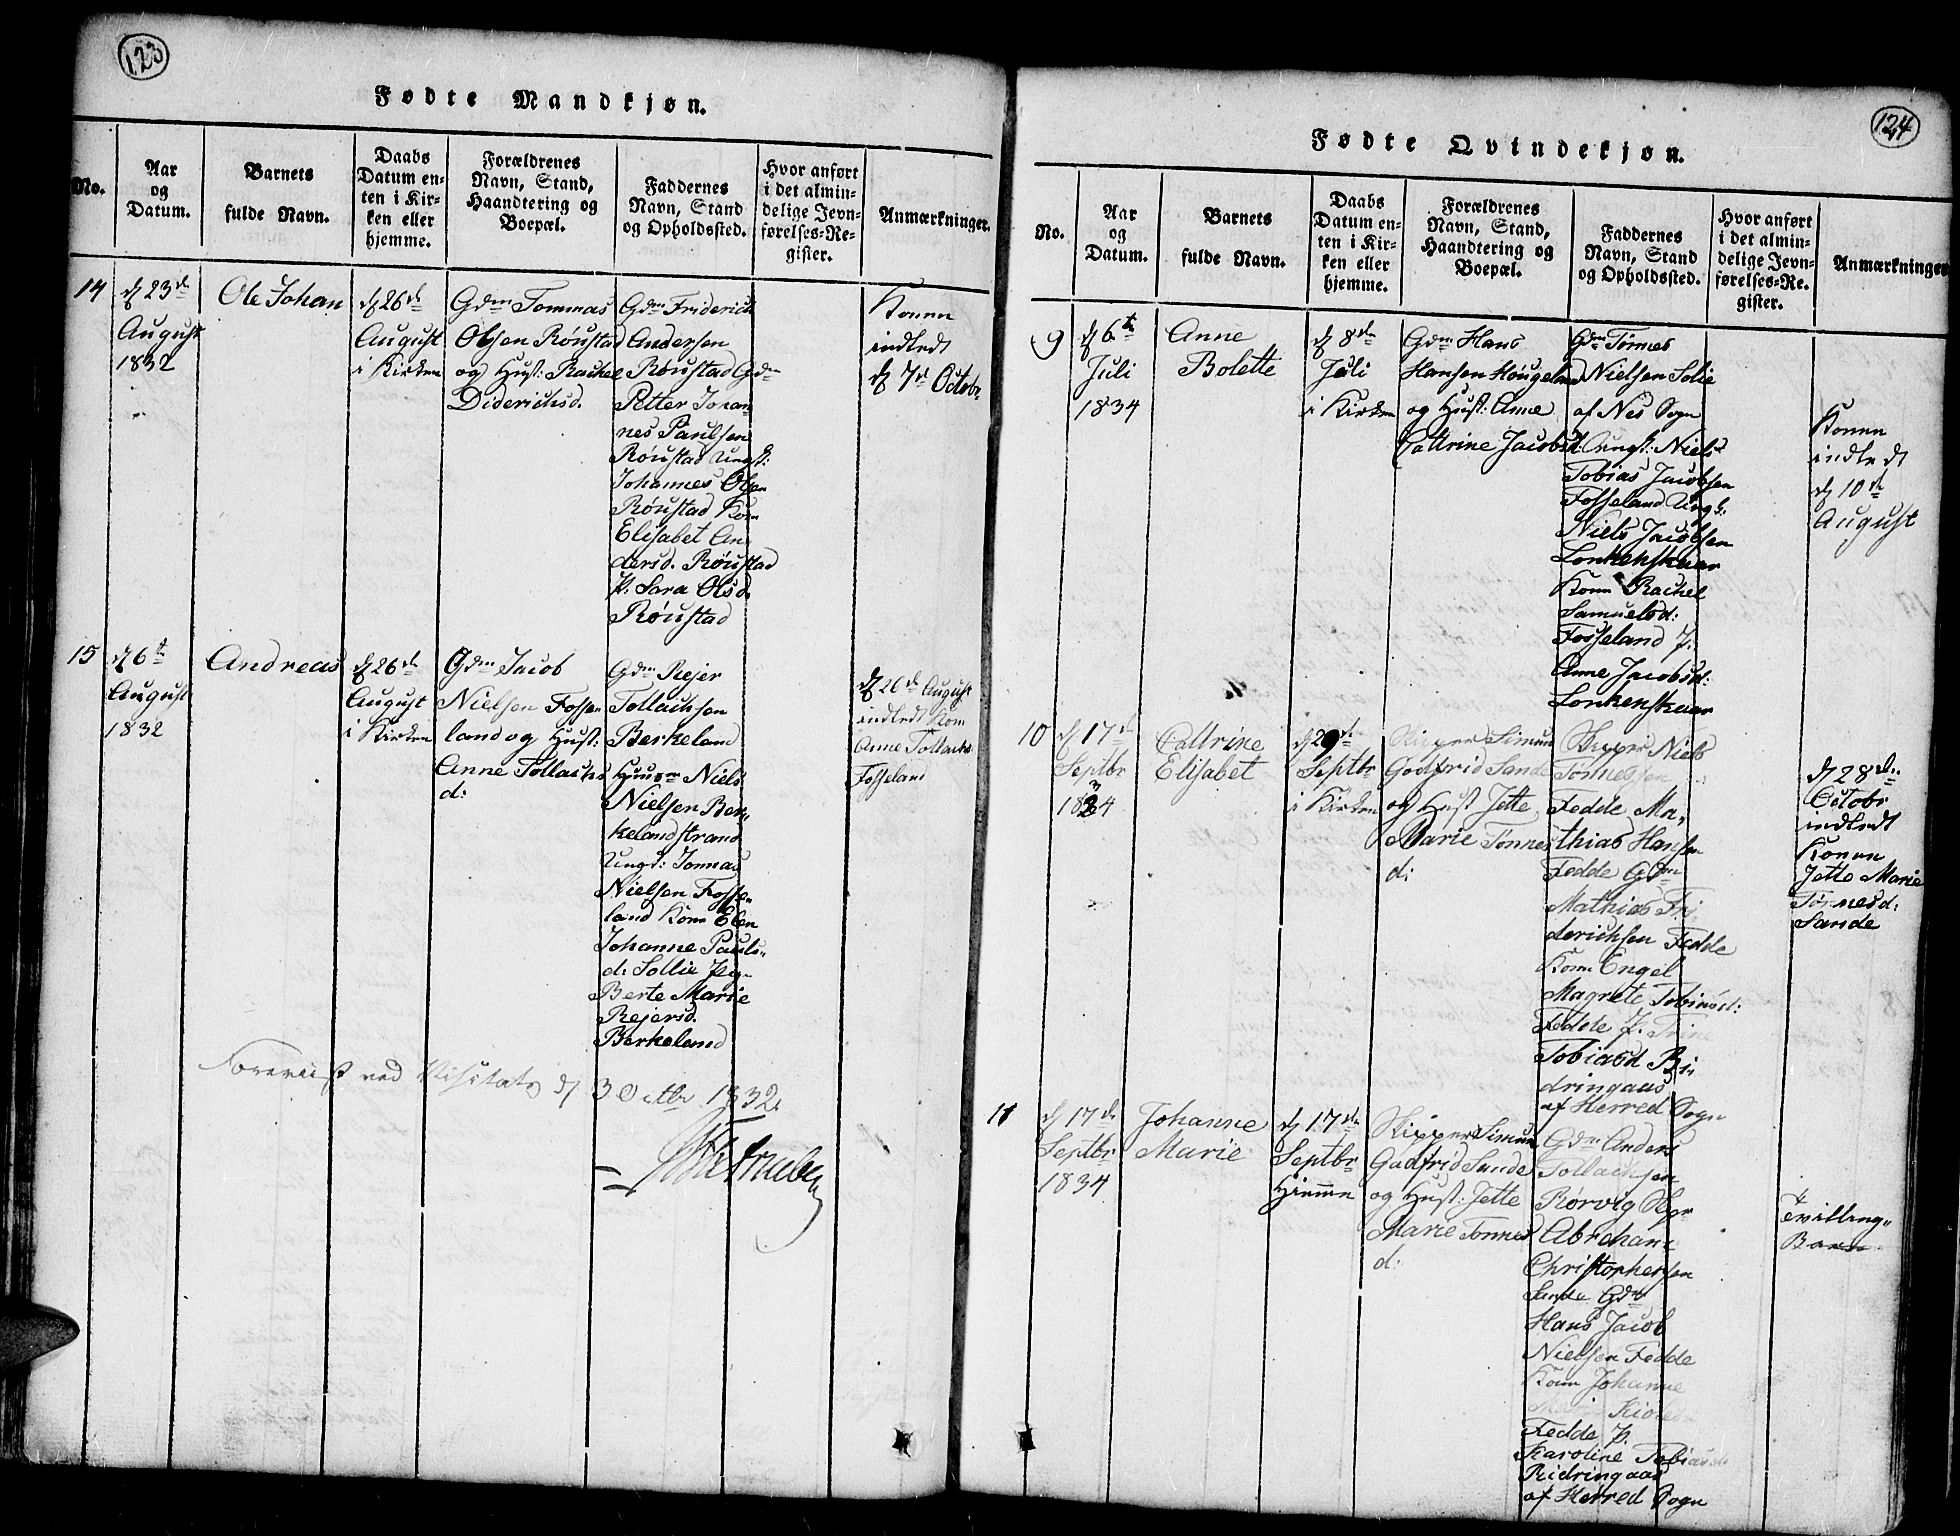 123
Fødte Mandkjøn.
No.
Aar
og
Datum.
Barnets
fulde Navn.
Daabs
Datum en-
ten i Kir-
ken eller
hjemme.
Forældrenes
Navn, Stand,
Haandtering og
Boepæl.
Faddernes
Navn, Stand
og Opholdssted.
Hvor anført
i det almin-
delige Jevn-
førelses-Re-
gister.
Anmærkninger.
14
d 23de
August
1832
Ole Johan
d 26de
August
i Kirken
Gdm Tommas
Olsen Röustad
og Hust: Rachel
Diderichsd.
Gdm Friderich
Andersen
Röustad Gdm
Petter Johan
nes Paulsen
Röustad Ungk:
Johannes Olsen
Röustad Kone
Elisabet An
dersd. Röustad
P. Sara Olsd.
Röustad
Konen
indledt
d 7de Octobr
15
d 6te
August
1832
Andreas
d 26de
August
i Kirken
Gdm Jacob
Nielsen Fosse
land og Hust:
Anne Tollachs
d:
Gdm Rejer
Tollachsen
Berkeland
Huusm Niels
Nielsen Ber,,
kelandstrand
Ungd: Tommas
Nielsen Fosse,,
land Kone Elen
Johanne Pauls,,
d: Sollie Pig.
Berte Marie
Rejersd.
Berkeland
d 26de August
indledt Kom
Anne Tollachs
Fosseland
Foreviist ved Visitats d 3 Octbr 1832.
124
Fødte Qvindekjøn.
No.
Aar
og
Datum.
Barnets
fulde Navn.
Daabs
Datum en-
ten i Kir-
ken eller
hjemme.
Forældrenes
Navn, Stand,
Haandtering og
Boepæl.
Faddernes
Navn, Stand
og Opholdssted.
Hvor anført
i det almin-
delige Jevn-
førelses-Re-
gister.
Anmærkninger
9
d 6te
Juli
1834
Anne
Bolette
d 8de
Juli
i Kirken
Gdm Hans
Hansen Höugeland
og Hust: Anne
Cattrine Jacobsd:
Gdm Tönnes
Nielsen Solie
af Nes Sogn
Ungk: Niels
Tobias Jacobsen
Fosseland Ungk:
Niels Jacobsen
Lonkenskaar
Konen Rachel
Samuelsd:
Fosseland P.
Anne Jacobsd:
Lonkenskaar
Konen
indledt
d 10de
August
10
d 17de
Septbr
1834
Cattrine
Elisabet
d 29de
Septbr
i Kirken
Skipper Simun
Godfrid Sande
og Hust Jette
Marie Tönnes
d:
Skipper Niels
Tönnessen
Fedde Ma,,
thias Hansen
Fedde Gdm
Mathias Fri
derichsen Fedde
Kone Engel
Magrete Tobiasd:
Fedde P. Trine
Tobiasd Ri
dringaas
af Herred Sogn
d 28de
Octobr
indledt
Konen
Jette Marie
Tönnesd:
Sande
11
d 17de
Septbr
1834
Johanne
Marie
d 17de
Septbr
Hiemme
Skipper Simun
Godfrid Sande
og Hust: Jette
Marie Tönnes
d:
Gdm Anders
Tollachsen
Rörvig Skpr
Abraham
Christophersen
Sande Gdm
Hans Jacob
Nielsen Fedde
Kone Johanne
Fedde P.
Karoline Tobiasd
Ridringaas
af Herred Sogn
Tvilling,,
Barn